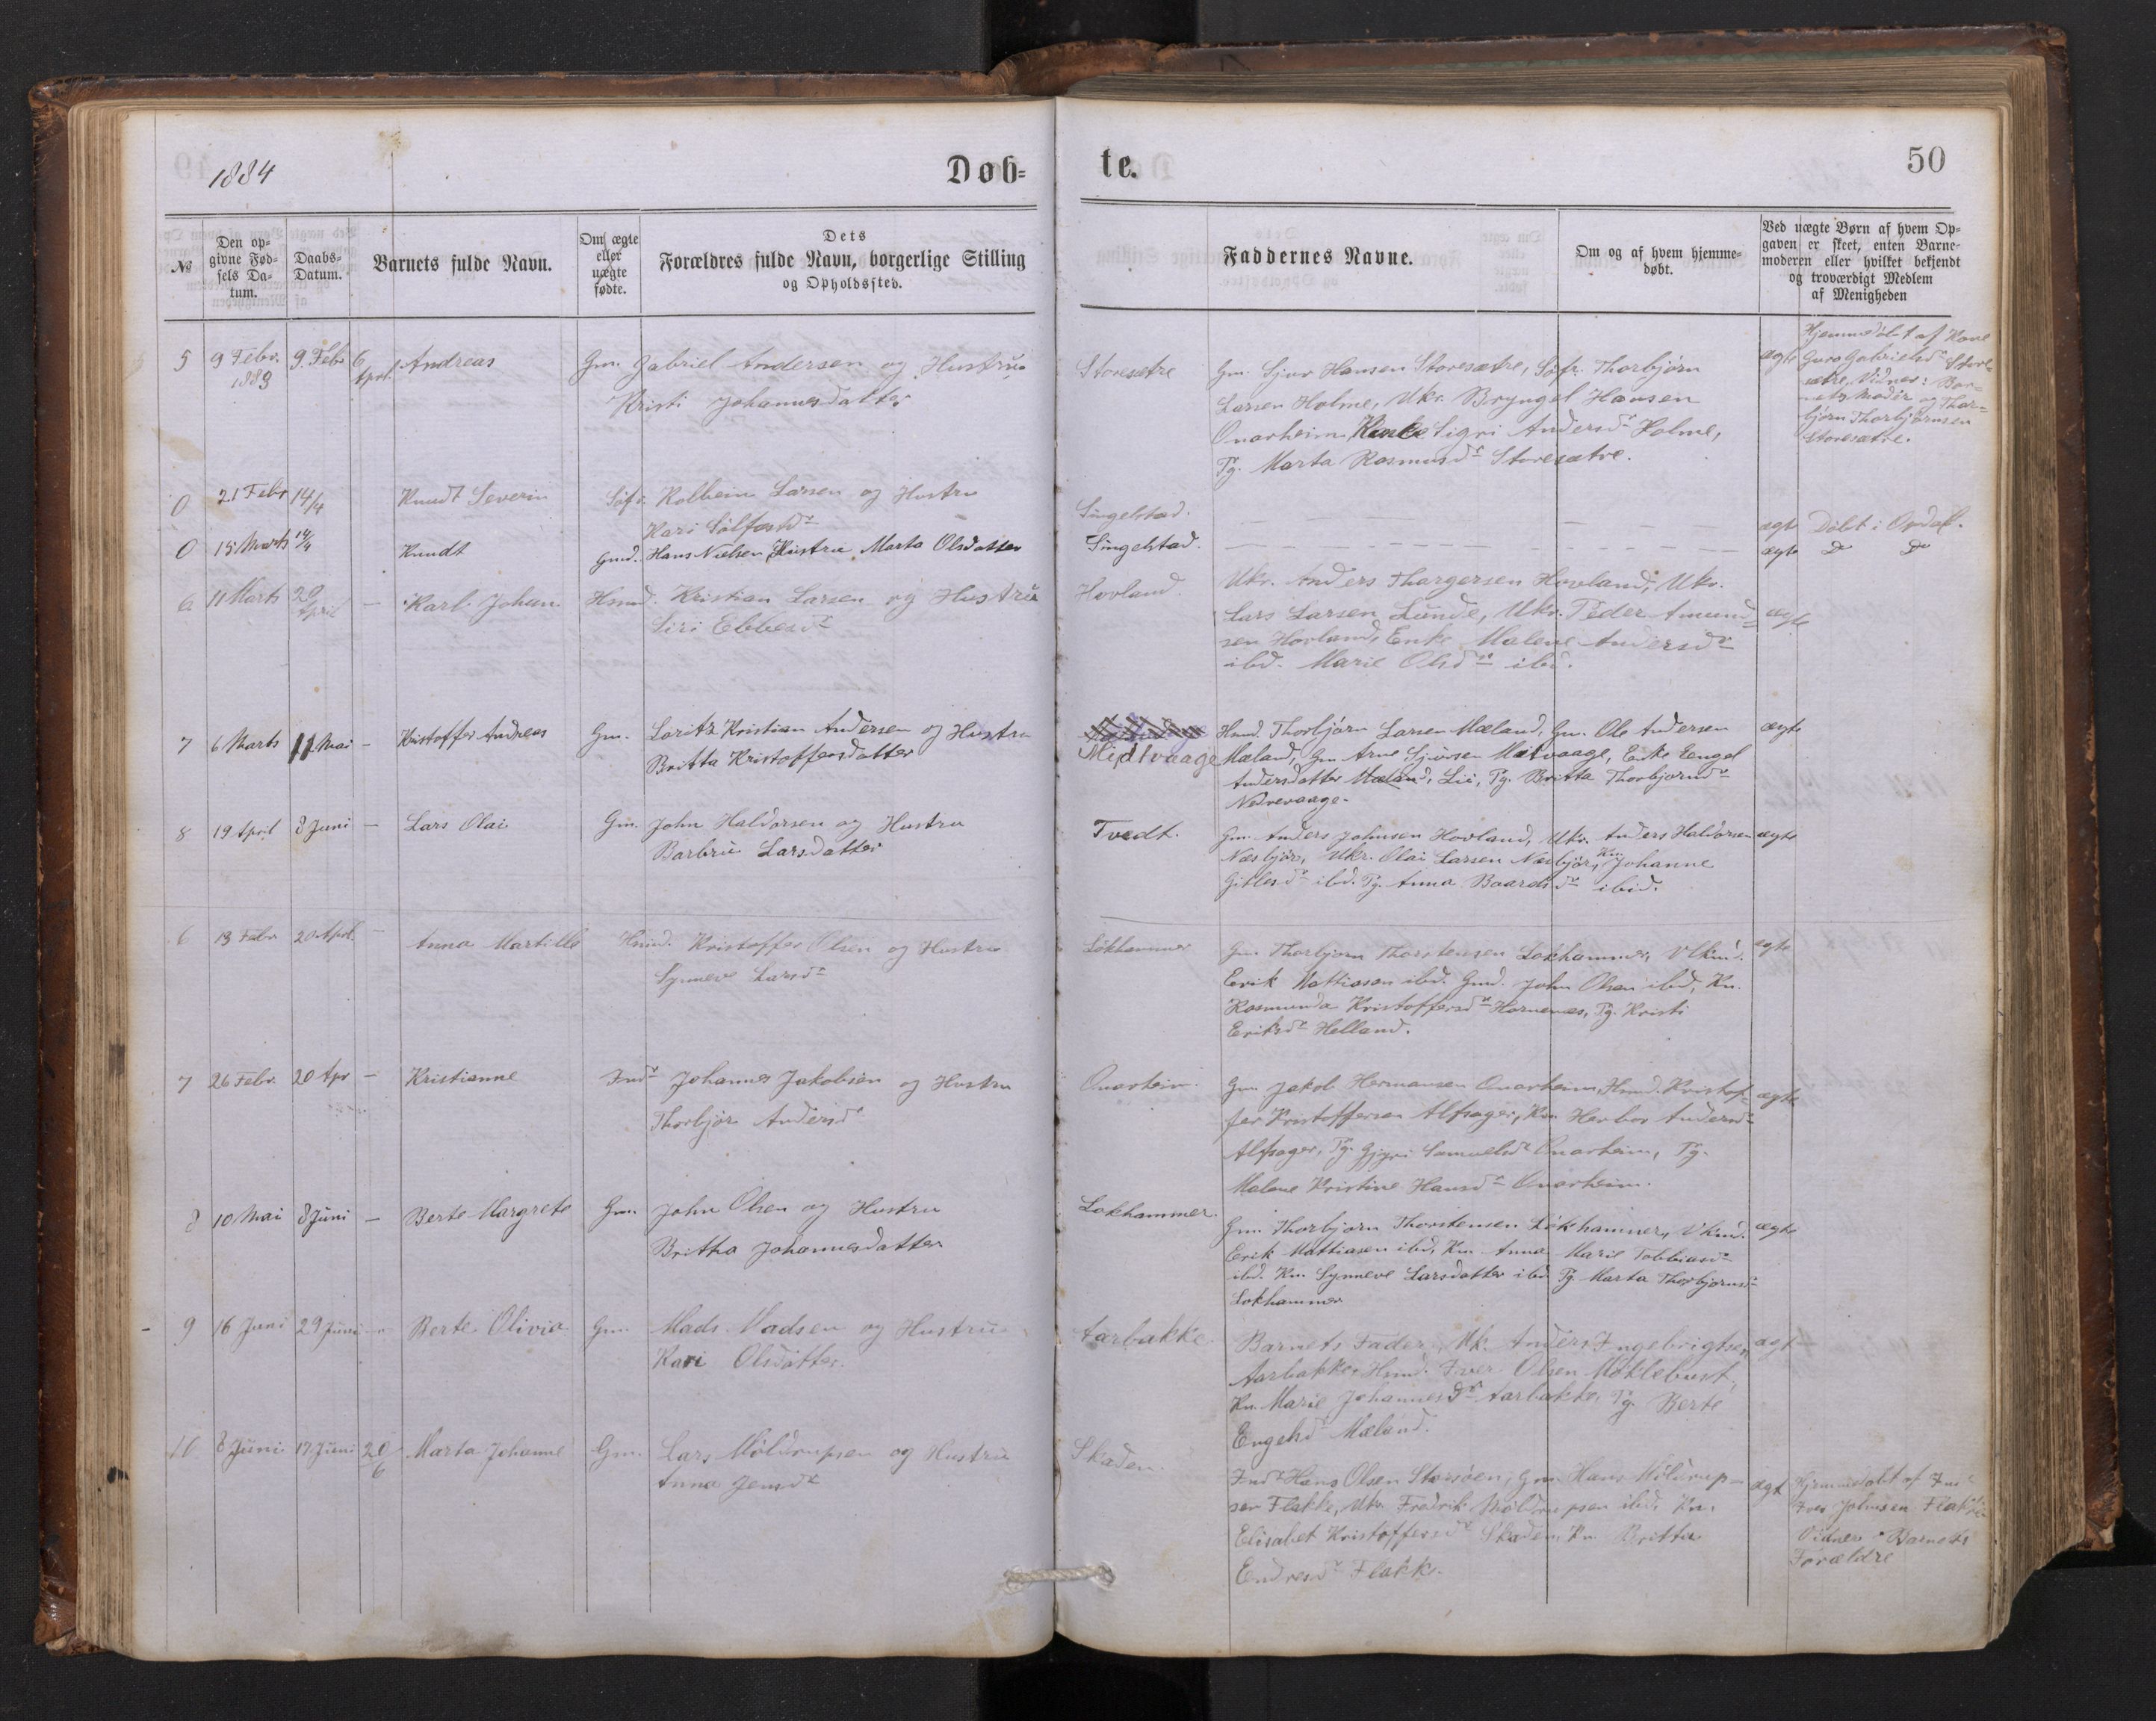 1884
Døb=
te.
50
№
Den op=
givne Fød=
sels Da=
tum.
Daabs=
Datum.
Barnets fulde Navn.
Om ægte
eller
uægte
fødte.
Dets
Forældres fulde Navn, borgerlige Stilling
og Opholdssted.
Faddernes Navne.
Om og af hvem hjemme=
døbt.
Ved uægte Børn af hvem Op=
gaven er skeet, enten Barne=
moderen eller hvilket bekjendt
og troværdigt Medlem
af Menigheden
5 9 Febr. 1883 9. Febr 6 Apl. Andreas Gm. Gabriel Andersen og Hustru
Kristi Johannesdatter
Storesætre
Gm. Sjur Hansen Storesætre, Søfr. Thorbjørn
Larsen Holme, Ukr. Bryngel Hansen
Onarheim, Sigri Andersdr Holme,
Pg. Marta Rasmusdr Storesætre.
ægte
Hjemmedøbt af Kone
Guro Gabrielsdr Store=
sætre, Vidner: Bar=
nets Moder og Thor=
bjørn Thorbjørnsen
Storesætre.
0 21 Febr 14/4 Knudt Severin Søfr. Kolbein Larsen og Hustru
Kari Solfestdr
Singelstad.
ægte Døbt i Opdal.
0 15 Marts 14/4 Knudt Gmd. Hans Nielsen Hustru Marta Olsdatter
Singelstad.
ægte Do Do
6 11 Marts 20 April — Karl Johan Hsmd. Kristian Larsen og Hustru
Siri Ebbesdr
Hovland
Ukr. Anders Thorgersen Hovland, Ukr.
Lars Larsen Lunde, Ukr. Peder Amund=
sen Hovland, Enke Malene Andersdr
ibd. Marie Olsdr ibd.
ægte
7 6 Marts 11 Mai — Kristoffer Andreas Gm. Loritz Kristian Andersen og Hustru
Britta Kristoffersdatter
Midtvaage
Hmd. Thorbjørn Larsen Mæland, Gm. Ole Andersen
Mæland, Gm Arne Sjursen Mitvaage, Enke Engel
Andersdatter Mæland, Lie, Pg. Britta Thorbjørnsdr
Nedrevaage.
ægte
8 19 April 8 Juni — Lars Olai Gm. John Haldorsen og Hustru
Barbru Larsdatter
Tvedt.
Gm. Anders Johnsen Hovland, Ukr. Anders Haldorsen
Næsbjør, Ukr. Olai Larsen Næsbjør, Kn. Johanne
Gitlesdr ibd. Pg. Anna Baardsdr ibid.
ægte
6 13 Febr 20 Apl. — Anna Martille Hsmd. Kristoffer Olsen og Hustru
Synneve Larsdr
Løkhammer
Gm. Thorbjørn Thorstensen Løkhammer,
Erik Mattiasen ibd. Gmd. John Olsen ibd, Kn.
Rasmunda Kristoffersdr Hornenes, Pg. Kristi
Eriksdr Helland.
ægte
7 26 Febr. 20 Apr — Kristianne Indr Johannes Jakobsen og Hustru
Thorbjør Andersdr
Onarheim.
Gm. Jakob Hermansen Onarheim, Hmd. Kristof=
fer Kristoffersen Alfsager, Kn Herbor Andersdr
Alfsager, Pg. Gjyri Samuelsdr Onarheim, Pg.
Malene Kristine Hansdr Onarheim.
ægte
8 10 Mai 8 Juni — Berte Margrete Gm. John Olsen og Hustru
Britha Johannesdatter
Løkhammer.
Gm. Thorbjørn Thorstensen Løkhammer,
Erik Mattiasen ibd, Kn. Anna Marie Tobbiasdr
ibd. Kn. Synneve Larsdatter ibd. Pg. Marta Thorbjørnsdr
Løkhammer
ægte
9 16 Juni 29 Juni Berte Olivia Gm. Mads Madsen og Hustru
Kari Olsdatter.
Aarbakke
Barnets Fader, Uk. Anders Ingebrigtsen
Aarbakke, Hsmd. Iver Olsen Møklebust,
Kn. Marie Johannesdr Aarbakke, Pg. Berte
Engelsdr Mæland.
ægt
10 8 Juni 17 Juni 29/6 Marta Johanne Gm. Lars Møldrupsen og Hustru
Anna Jensdr
Skaden.
Indr Hans Olsen Storsøen, Gm. Hans Møldrup=
sen Flakke, Ukr. Fredrik Møldrupsen ibd, Kn.
Elisabet Kristoffersdr Skaden, Kn Britta
Endresdr Flakke.
ægt
Hjemmedøbt af Indr
Iver Johnsen Flakke
Vidner Barnets
Forældre